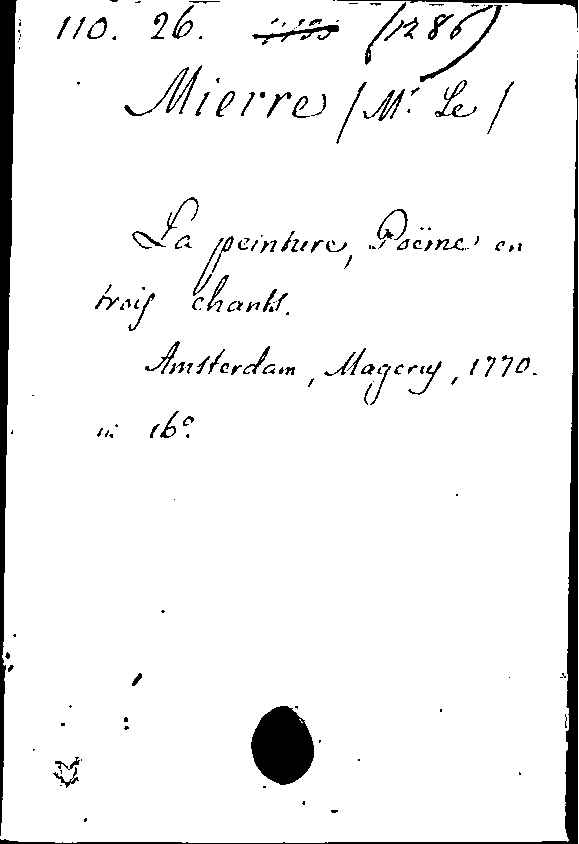 110. 26. (1286)
Mierre (Mr. Le)
La peinture, Poëme en
trois chants.
Amsterdam, Magerus, 1770.
in 16º.